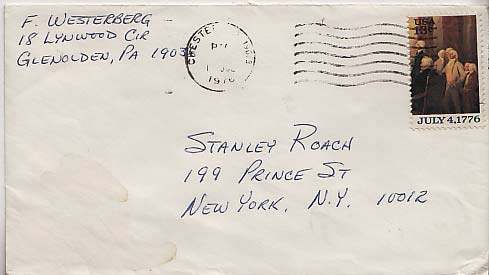 F. WESTERBERG
18 LYNWOOD CIR
GLENOLDEN, PA 1903
CHESTER
1976
USA
13c
JULY 4, 1776
STANLEY ROACH
199 PRINCE ST
NEW YORK, N.Y. 10012